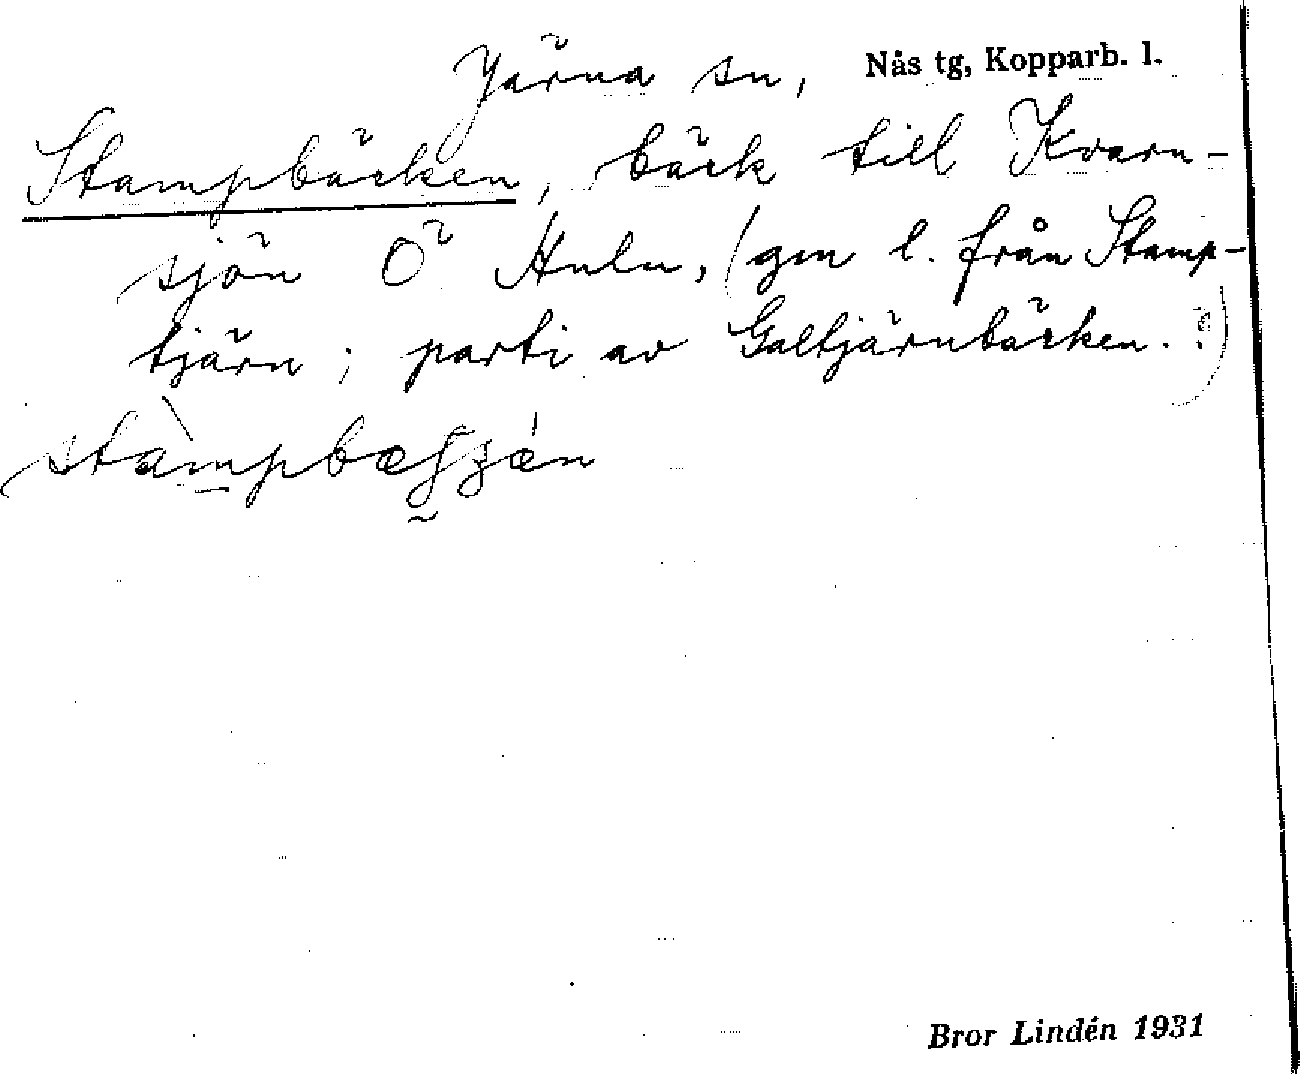 Järna sn, Nås tg, Kopparb. l.
Stampbäcken, bäck till Kvarn-
sjön Ö Huln, (gm l. från Stamp-
tjärn; parti av Galtjärnbäcken.?)
Bror Lindén 1931